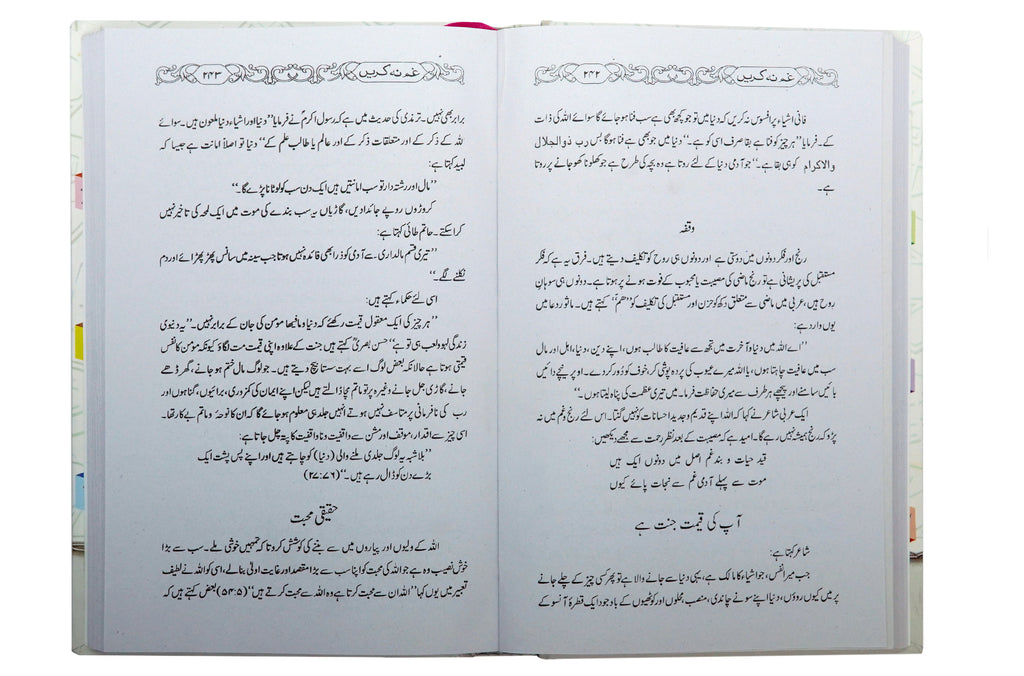 غم نہ کریں
۲۴۲
فانی اشیاء پر افسوس نہ کریں کہ دنیا میں تو جو کچھ بھی ہے سب فنا ہو جائے گا سوائے اللہ کی ذات
کے۔ فرمایا ’’ہر چیز کو فنا ہے بقا صرف اسی کو ہے۔‘‘ دنیا میں جو بھی ہے فنا ہو گا بس رب ذوالجلال
والاکرام کو ہی بقا ہے۔‘‘ جو آدمی دنیا کے لئے روتا ہے وہ بچہ کی طرح ہے جو کھلونا کھو جانے پر روتا
ہے۔
وقفہ
رنج اور فکر دونوں میں دوستی ہے اور دونوں ہی روح کو تکلیف دیتے ہیں۔ فرق یہ ہے کہ فکر
مستقبل کی پریشانی ہے تو رنج ماضی کی مصیبت یا محبوب کے فوت ہونے پر ہوتا ہے۔ دونوں ہی سوہانِ
روح ہیں، عربی میں ماضی سے متعلق دکھ کو حزن اور مستقبل کی تکلیف کو ’’ھمّ‘‘ کہتے ہیں۔ ماثور دعا میں
یوں وارد ہے:
’’اے اللہ میں دنیا و آخرت میں تجھ سے عافیت کا طالب ہوں، اپنے دین، دنیا، اہل اور مال
سب میں عافیت چاہتا ہوں، یا اللہ میرے عیوب کی پردہ پوشی کر، خوف کو دور کر دے۔ اوپر نیچے دائیں
بائیں سامنے اور پیچھے ہر طرف سے میری حفاظت فرما۔ میں تیری عظمت کی پناہ لیتا ہوں۔‘‘
ایک عربی شاعر نے کہا کہ اللہ اپنے قدیم و جدید احسانات کو نہیں گنتا۔ اس لئے رنج و غم میں نہ
پڑو کہ رنج ہمیشہ نہیں رہے گا۔ امید ہے کہ مصیبت کے بعد نظر رحمت سے مجھے دیکھیں:
قید حیات و بند غم اصل میں دونوں ایک ہیں
موت سے پہلے آدمی غم سے نجات پائے کیوں
آپ کی قیمت جنت ہے
شاعر کہتا ہے:
جب میرا نفس، جو اشیاء کا مالک ہے، یہی دنیا سے جانے والا ہے تو پھر کسی چیز کے چلے جانے
پر میں کیوں روؤں، دنیا اپنے سونے چاندی، منصب، محلوں اور کوٹھیوں کے باوجود ایک قطرۂ آنسو کے
غم نہ کریں
۲۴۳
برابر بھی نہیں۔ ترمذی کی حدیث میں ہے کہ رسول اکرمؐ نے فرمایا ’’دنیا اور اشیاء دنیا ملعون ہیں۔ سوائے
اللہ کے ذکر کے اور متعلقات ذکر کے اور عالم یا طالب علم کے‘‘ دنیا تو اصلاً امانت ہے جیسا کہ
لبید کہتا ہے:
’’مال اور رشتہ دار تو سب امانتیں ہیں ایک دن سب کو لوٹانا پڑے گا۔‘‘
کروڑوں روپے جائدادیں، گاڑیاں یہ سب بندے کی موت میں ایک لمحہ کی تاخیر نہیں
کرا سکتے۔ حاتم طائی کہتا ہے:
’’تیری قسم مالداری سے آدمی کو ذرا بھی فائدہ نہیں ہوتا جب سینہ میں سانس پھڑپھڑائے اور دم
نکلنے لگے۔‘‘
اسی لئے حکماء کہتے ہیں:
’’ہر چیز کی ایک معقول قیمت رکھئے کہ دنیا و مافیہا مؤمن کی جان کے برابر نہیں۔‘‘ یہ دنیوی
زندگی لہو و لعب ہی تو ہے‘‘ حسن بصریؒ کہتے ہیں جنت کے علاوہ اپنی قیمت مت لگاؤ کیونکہ مؤمن کا نفس
قیمتی ہوتا ہے حالانکہ بعض لوگ اسے بہت سستا بیچ دیتے ہیں۔ جو لوگ مال ختم ہو جانے، گھر ڈھے
جانے، گاڑی جل جانے وغیرہ پر تو ماتم مچا ڈالتے ہیں لیکن اپنے ایمان کی کمزوری، برائیوں، گناہوں اور
رب کی نافرمانی پر متاسف نہیں ہوتے انہیں جلد ہی معلوم ہو جائے گا کہ ان کا نوحہ و ماتم بے کار تھا۔
اسی چیز سے اقدار، موقف اور مشن سے واقفیت و نا واقفیت کا پتہ چل جاتا ہے:
’’بلاشبہ یہ لوگ جلدی ملنے والی (دنیا) کو چاہتے ہیں اور اپنے پس پشت ایک
بڑے دن کو ڈال رہے ہیں۔‘‘ (۲۷:۷۶)
حقیقی محبت
اللہ کے ولیوں اور پیاروں میں سے بننے کی کوشش کرو تا کہ تمہیں خوشی ملے۔ سب سے بڑا
خوش نصیب وہ ہے جو اللہ کی محبت کو اپنا سب سے بڑا مقصد اور غایت اولیٰ بنا لے، اسی کو اللہ نے لطیف
تعبیر میں یوں کہا ’’اللہ ان سے محبت کرتا ہے وہ اللہ سے محبت کرتے ہیں‘‘ (۵۴:۵) بعض کہتے ہیں کہ